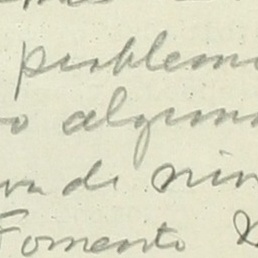 problema
o alguna
va de nin
Fomento